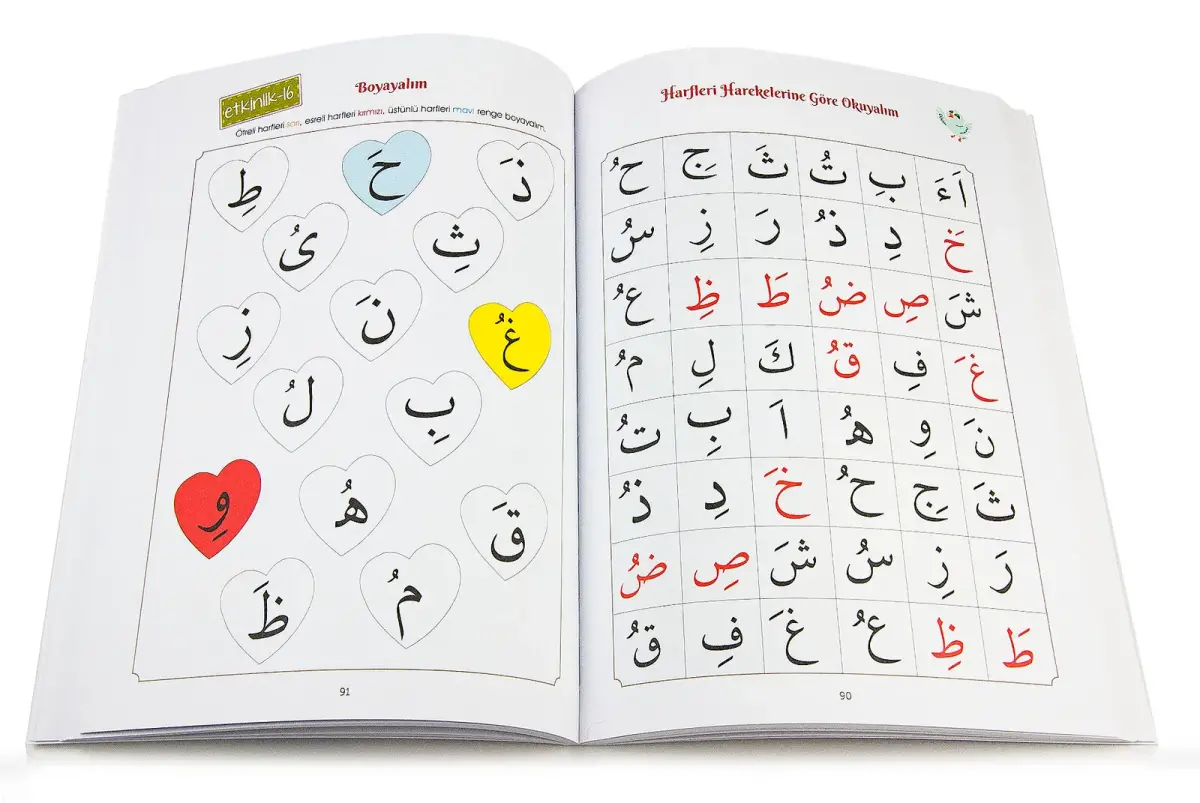 Harfleri Harekelerine Göre Okuyalım
اَءَ بِ تُ ثَ جِ حُ
خَ دِ ذُ رَ زِ سُ
شَ صِ ضُ طَ ظِ عُ
غَ فِ قُ كَ لِ مُ
نَ وِ هُ اَ بِ تُ
ثَ جِ حُ خَ دِ ذُ
رَ زِ سُ شَ صِ ضُ
طَ ظِ عُ غَ فِ قُ
90
etkinlik-16
Boyayalım
Ötreli harfleri sarı, esreli harfleri kırmızı, üstünlü harfleri mavi renge boyayalım.
ذَ حَ طِ
ثِ ىُ
غُ نَ زِ
بِ لُ
قَ هُ وِ
مُ ظَ
91